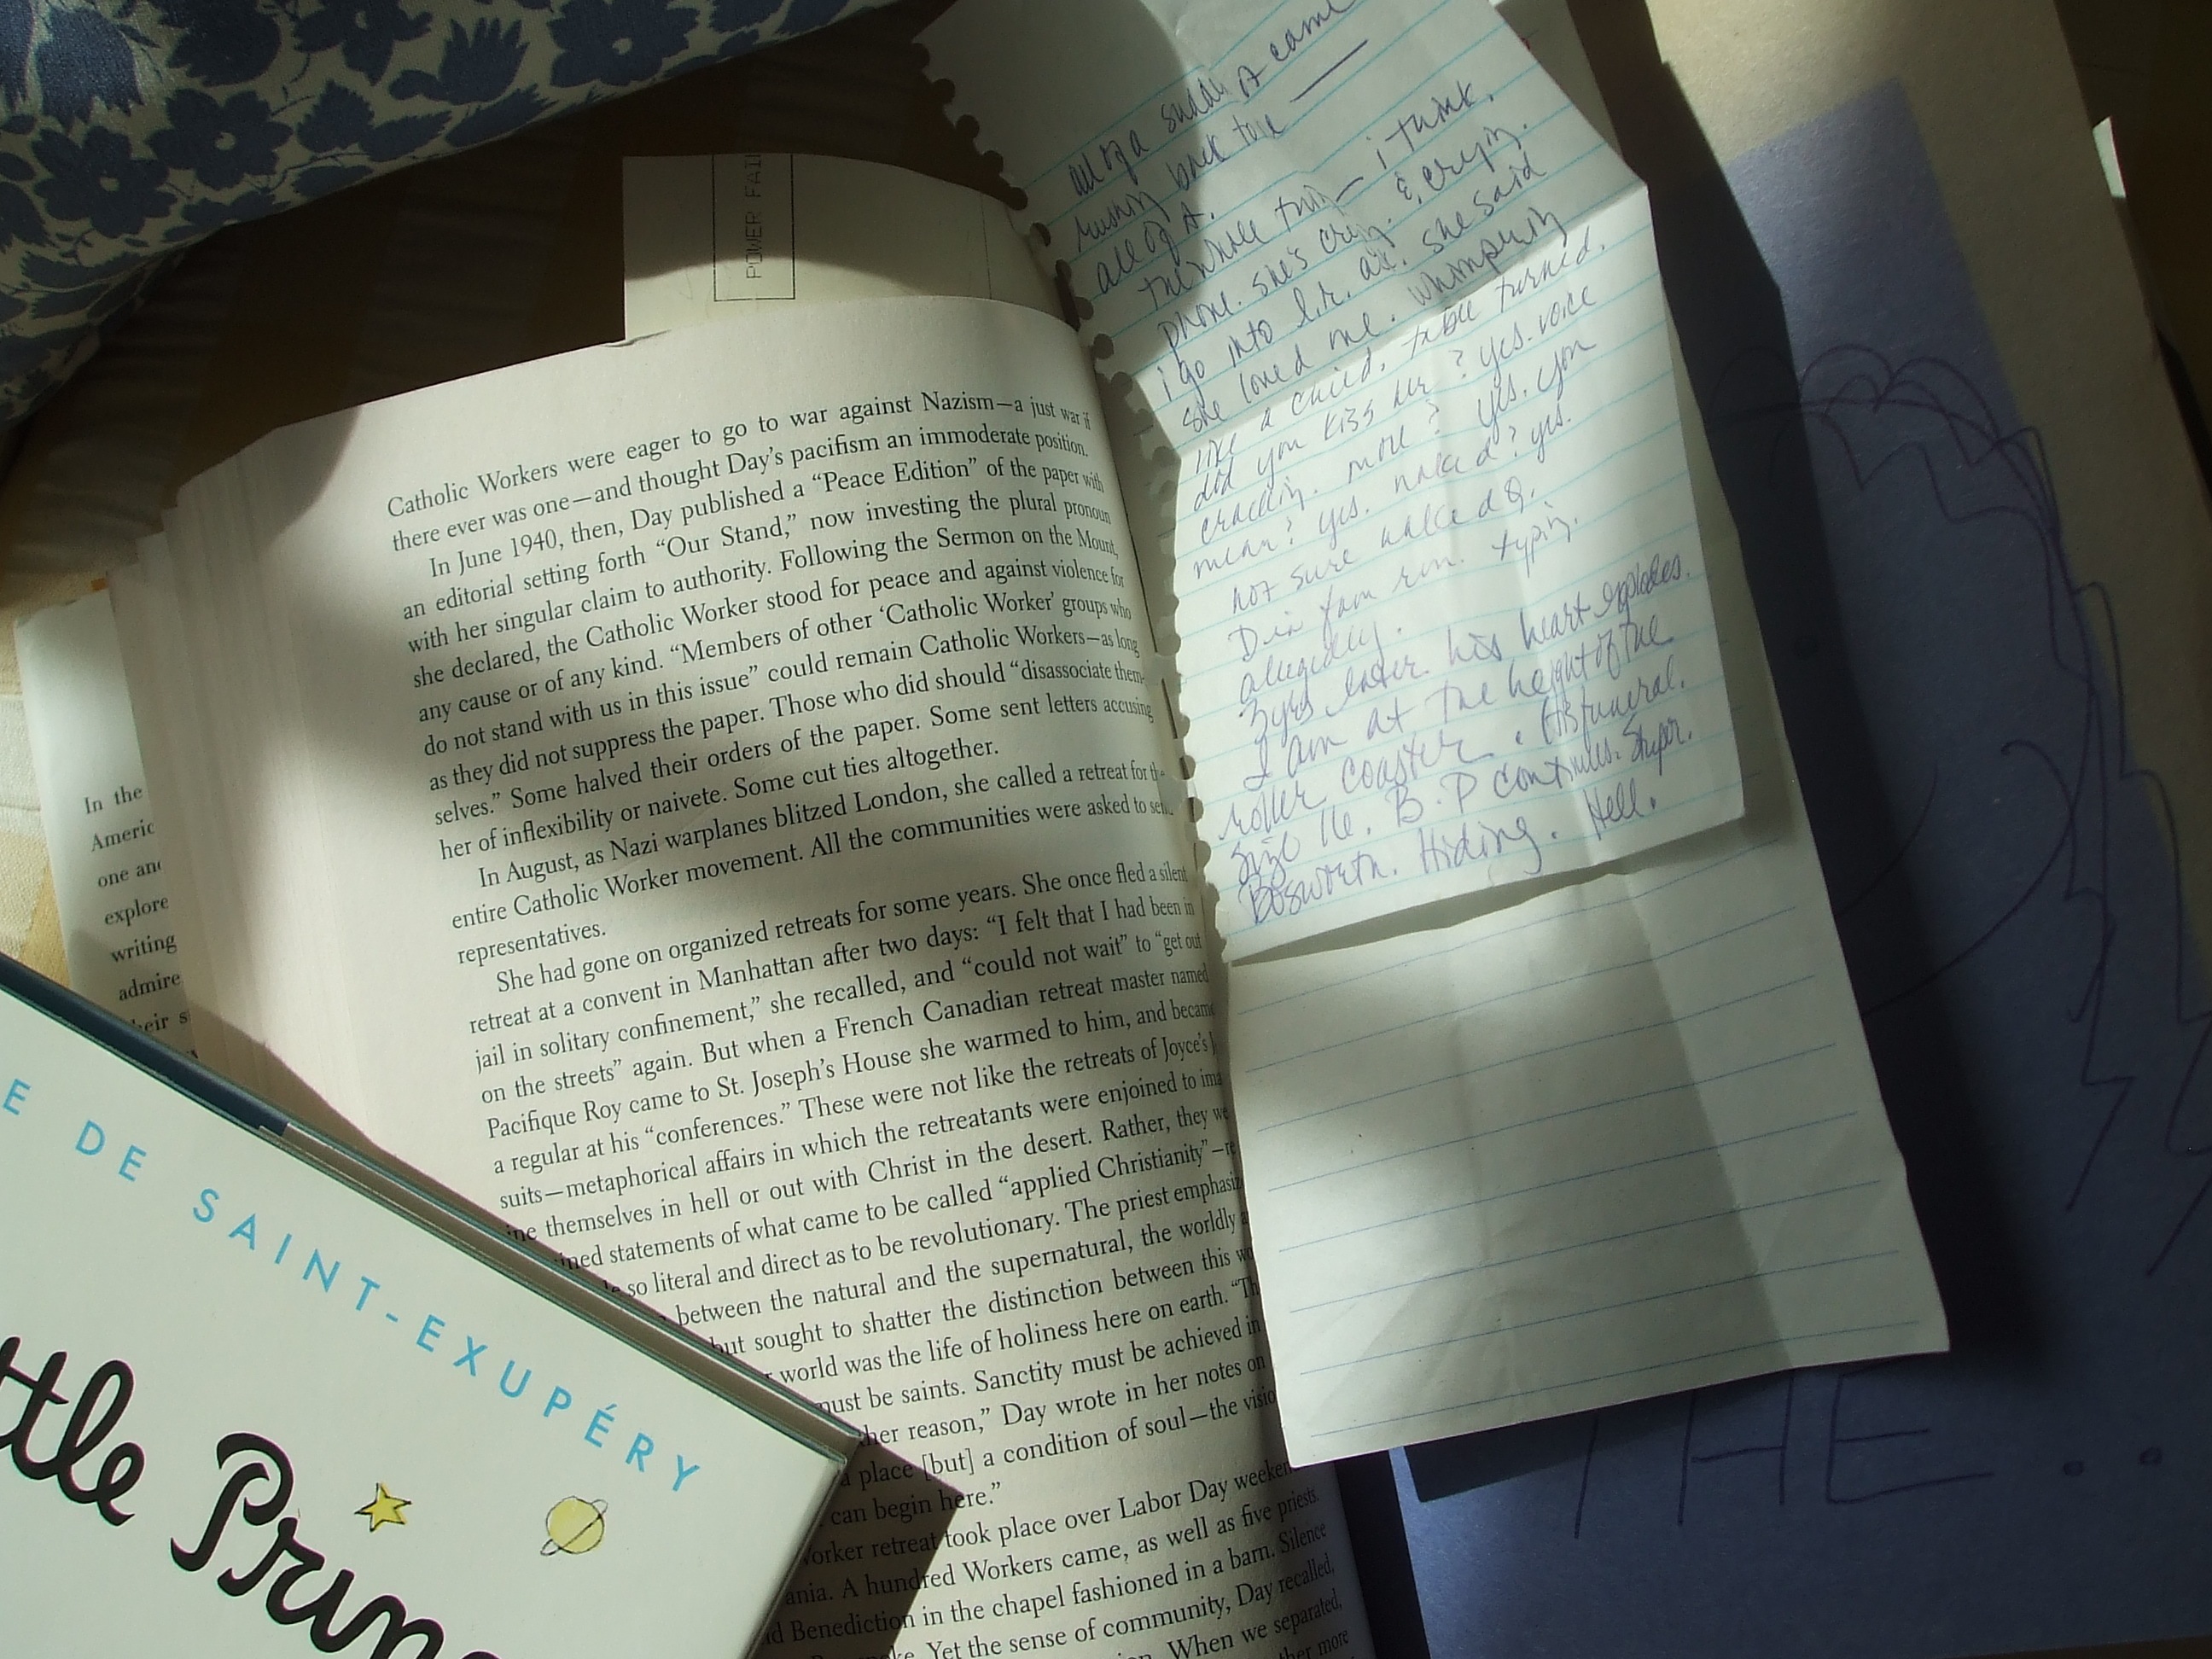 POWER FAIL
Catholic Workers were eager to go to war against Nazism—a just war if
there ever was one—and thought Day's pacifism an immoderate position.
In June 1940, then, Day published a “Peace Edition” of the paper with
an editorial setting forth “Our Stand,” now investing the plural pronoun
with her singular claim to authority. Following the Sermon on the Mount,
she declared, the Catholic Worker stood for peace and against violence for
any cause or of any kind. “Members of other ‘Catholic Worker’ groups who
do not stand with us in this issue” could remain Catholic Workers—as long
as they did not suppress the paper. Those who did should “disassociate them-
selves.” Some halved their orders of the paper. Some sent letters accusing
her of inflexibility or naivete. Some cut ties altogether.
In August, as Nazi warplanes blitzed London, she called a retreat for the
entire Catholic Worker movement. All the communities were asked to
representatives.
She had gone on organized retreats for some years. She once fled a silent
retreat at a convent in Manhattan after two days: “I felt that I had been in
jail in solitary confinement,” she recalled, and “could not wait” to “get out
on the streets” again. But when a French Canadian retreat master named
Pacifique Roy came to St. Joseph's House she warmed to him, and became
a regular at his “conferences.” These were not like the retreats of Joyce's
suits—metaphorical affairs in which the retreatants were enjoined to
themselves in hell or out with Christ in the desert. Rather, they
statements of what came to be called “applied Christianity”
so literal and direct as to be revolutionary. The priest
between the natural and the supernatural, the worldly
but sought to shatter the distinction between this
world was the life of holiness here on earth.
must be saints. Sanctity must be achieved in
reason,” Day wrote in her notes on
a place [but] a condition of soul—the
can begin here.”
retreat took place over Labor Day
A hundred Workers came, as well as five priests.
Benediction in the chapel fashioned in a barn. Silence
Yet the sense of community, Day recalled,
When we separated,
more
all of a came
back to
all of it.
the whole i think.
phone. she's & crying.
i go into l.r. she said
she loved me. whimpering
like a child. table turned.
did you kiss her? yes. voice
cracking. more? yes. you
mean? yes. naked? yes.
not sure walked
D in fam rm. typing.
allegedly.
3yrs later. his heart explodes.
I am at the height of the
roller coaster. His funeral.
Size 16. B.P continues.
Bosworth. Hiding. Hell.
In the
Americ
one and
explore
writing
admire
E DE SAINT-EXUPÉRY
ttle Prin
THE..